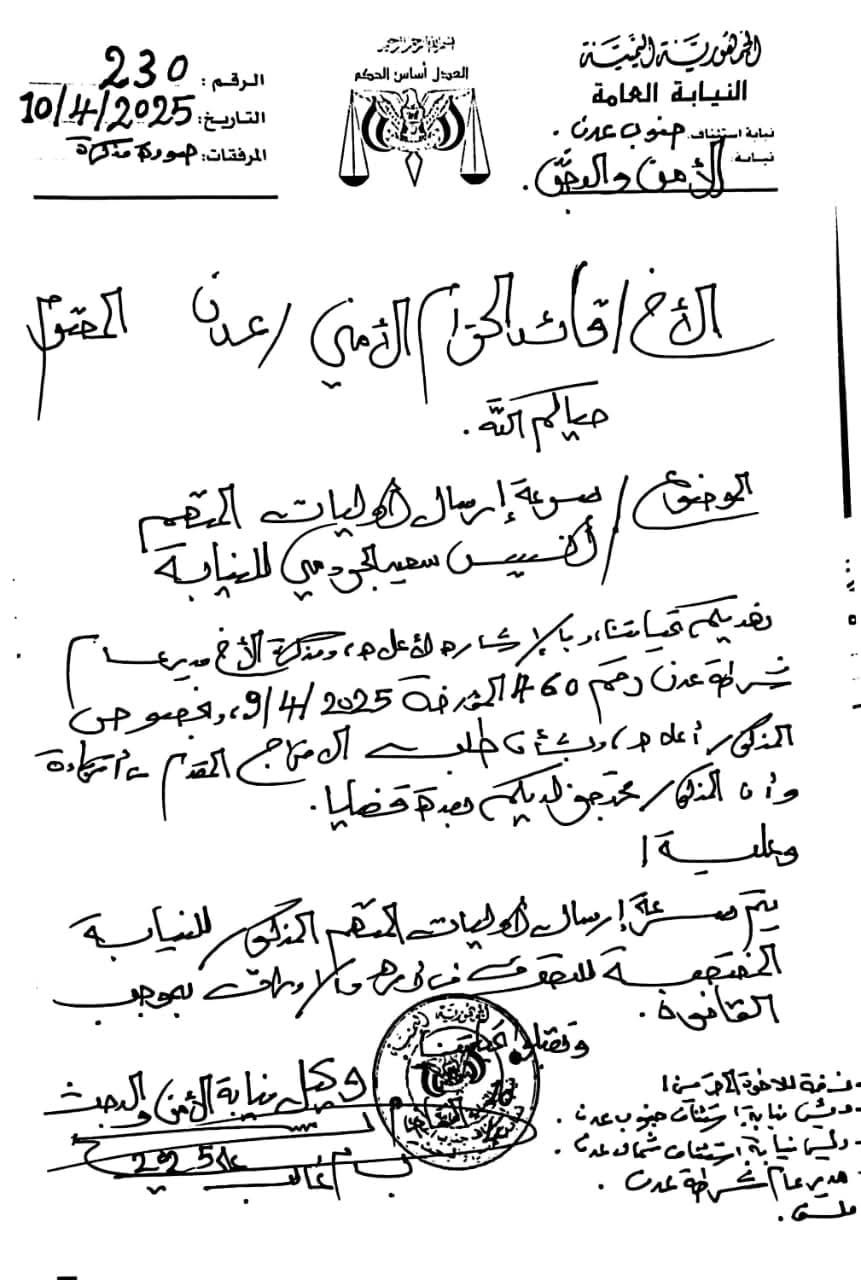 الجمهورية اليمنية
النيابة العامة
نيابة استئناف: جنوب عدن.
نيابة: الأمن والبحث.
بسم الله الرحمن الرحيم
العدل أساس الحكم
الرقم: 230
التاريخ: 10/4/2025
المرفقات: صورة مذكرة
الأخ / قائد الحزام الأمني / عدن المحترم
حياكم الله.
الموضوع / سرعة إرسال أوليات المتهم
أنيس سعيد الجردمي للنيابة
نهديكم تحياتنا، وبالإشارة لأعلاه، ومذكرة الأخ مدير عام
شرطة عدن رقم 460 المؤرخة 9/4/2025، وبخصوص
المذكور أعلاه، وبشأن طلب الإفراج المقدم
وأن المذكور محتجز لديكم بعدة قضايا.
وعليه /
يتم سرعة إرسال أوليات المتهم المذكور للنيابة
المختصة للتصرف في أمره والأوراق بموجب
القانون.
وتقبلوا تحياتنا
وكيل نيابة الأمن والبحث
نسخة للأخوة المحترمين /
رئيس نيابة استئناف جنوب عدن.
رئيس نيابة استئناف شمال عدن.
مدير عام شرطة عدن.
ملف.